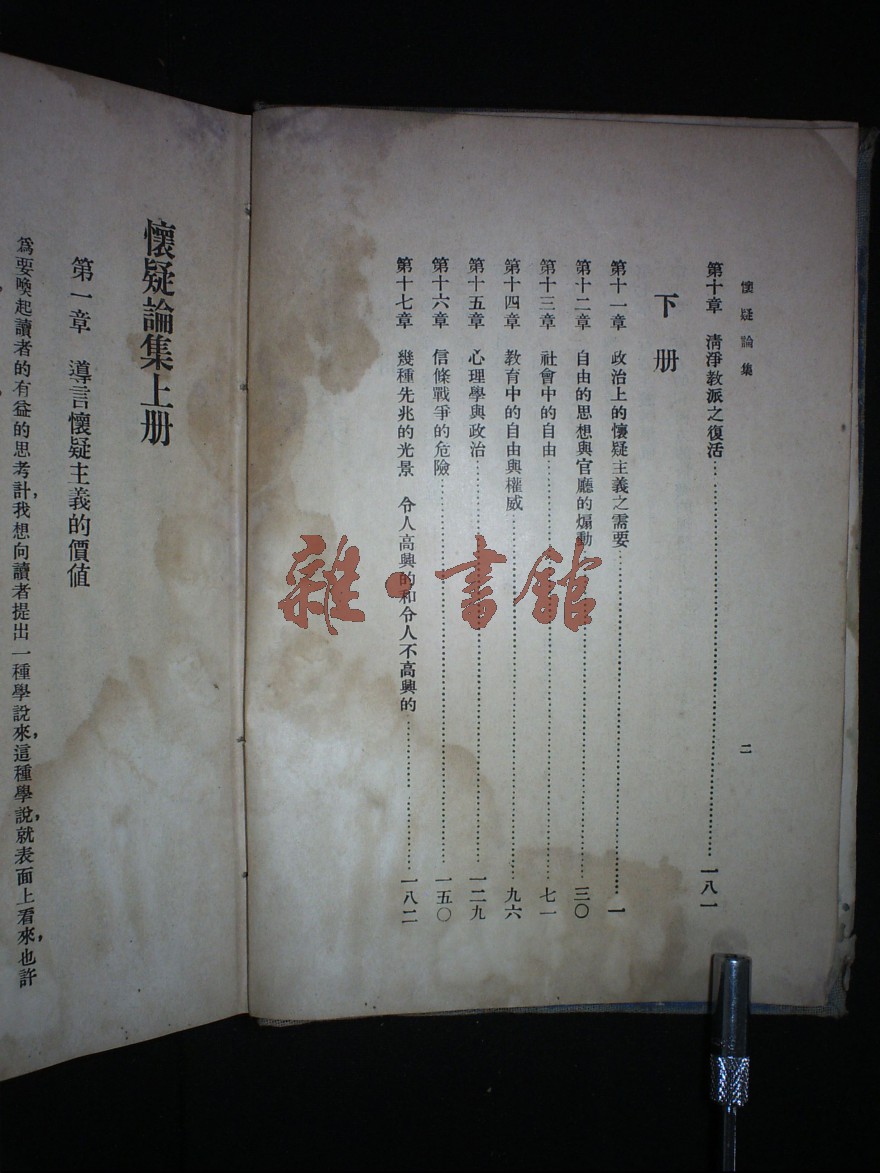 懷疑論集
二
第十章 清淨教派之復活……一八一
下册
第十一章 政治上的懷疑主義之需要……一
第十二章 自由的思想與官廳的煽動……三〇
第十三章 社會中的自由……七一
第十四章 教育中的自由與權威……九六
第十五章 心理學與政治……一二九
第十六章 信條戰爭的危險……一五〇
第十七章 幾種先兆的光景 令人高興的和令人不高興的……一八二
懷疑論集上册
第一章 導言懷疑主義的價値
爲要喚起讀者的有益的思考計,我想向讀者提出一種學說來,這種學說,就表面上看來,也許
雜·書館